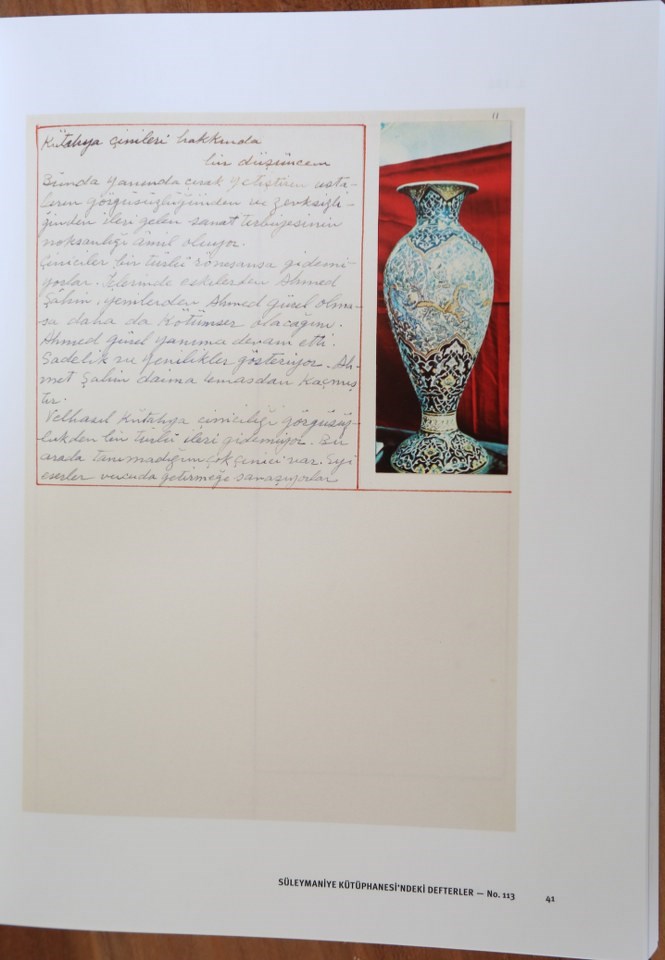 11
Kütahya çinileri hakkında
bir düşüncem
Bunda yanında çırak yetiştiren usta-
ların görgüsüzlüğünden ve zevksizli-
ğinden ileri gelen sanat terbiyesinin
noksanlığı âmil oluyor.
Çiniciler bir türlü rönesansa gidemi-
yorlar. Elerinde eskilerden Ahmed
Şahin, yenilerden Ahmed gürel olma-
sa daha da kötümser olacağım.
Ahmed gürel yanıma devam etti.
Sadelik ve yenilikler gösteriyor. Ah-
met Şahin daima temasdan kaçmış
tır.
Velhasıl Kütahya çiniciliği görgüsüz-
lükden bir türlü ileri gidemiyor. Bu
arada tanımadığım çok çinici var. İyi
eserler vucuda getirmeğe savaşıyorlar
SÜLEYMANİYE KÜTÜPHANESİ'NDEKİ DEFTERLER — No. 113 41